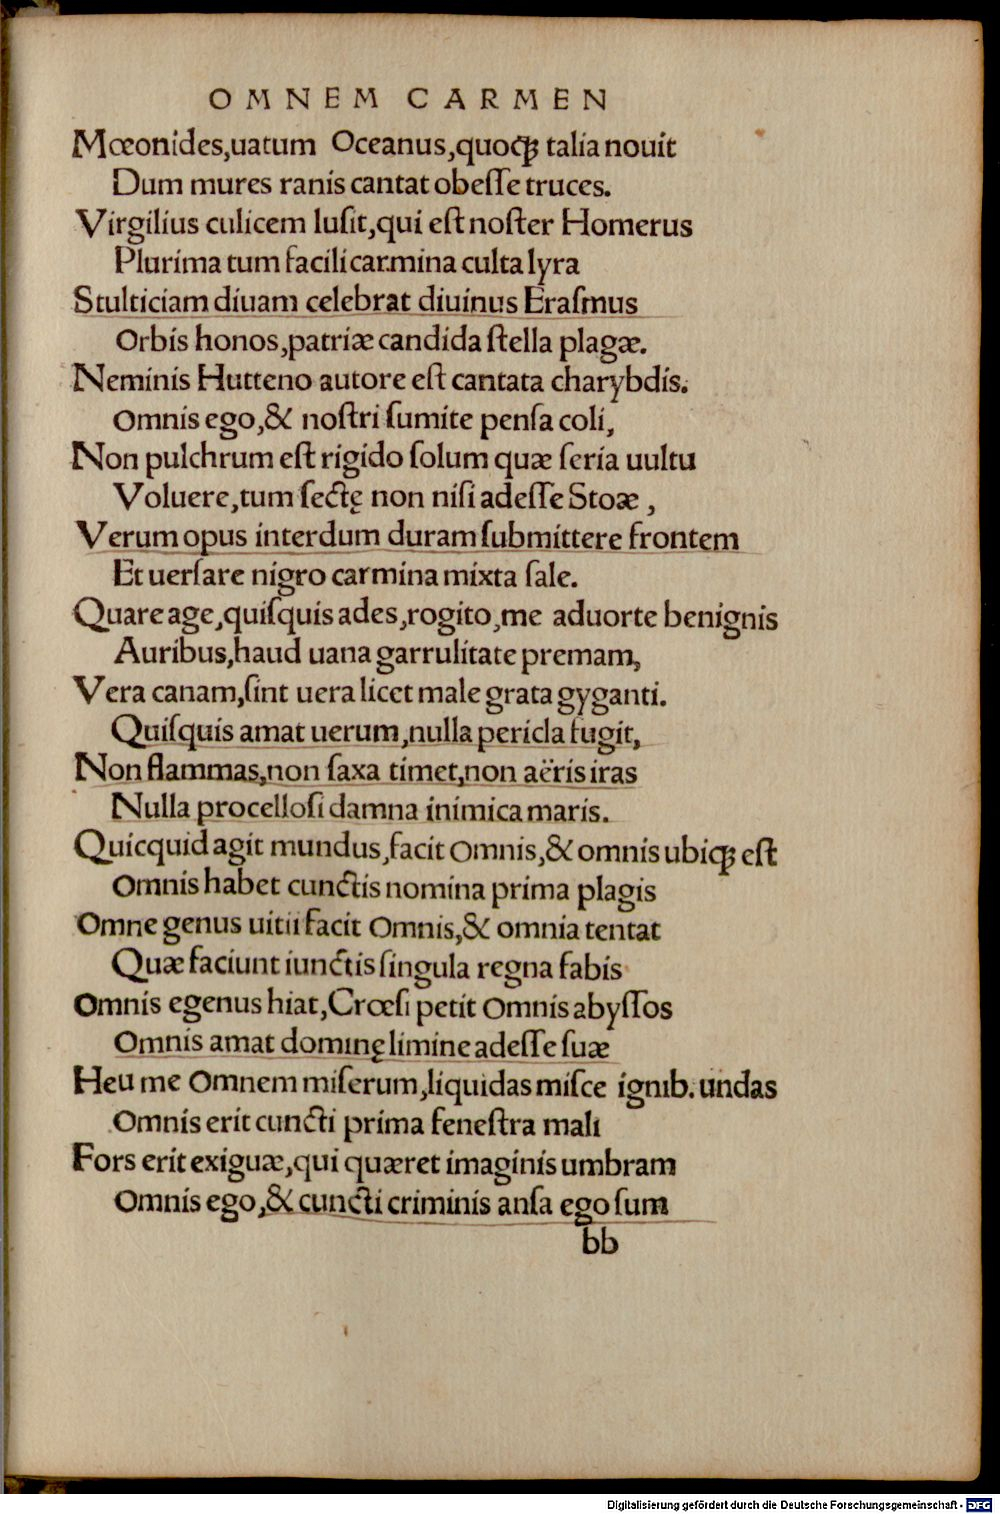 OMNEM CARMEN
Mœonides,uatum Oceanus,quoqꝫ talia nouit
Dum mures ranis cantat obeſſe truces.
Virgilius culicem luſit,qui eſt noſter Homerus
Plurima tum facili carmina culta lyra
Stulticiam diuam celebrat diuinus Eraſmus
Orbis honos,patriæ candida ſtella plagæ.
Neminis Hutteno autore eſt cantata charybdis.
Omnis ego,& noſtri ſumite penſa coli,
Non pulchrum eſt rigido ſolum quæ ſeria uultu
Voluere,tum ſectę non niſi adeſſe Stoæ ,
Verum opus interdum duram ſubmittere frontem
Et uerſare nigro carmina mixta ſale.
Quare age,quiſquis ades,rogito,me aduorte benignis
Auribus,haud uana garrulitate premam,
Vera canam,ſint uera licet male grata gyganti.
Quiſquis amat uerum,nulla pericla fugit,
Non flammas,non ſaxa timet,non aëris iras
Nulla procelloſi damna inimica maris.
Quicquid agit mundus,facit Omnis,& omnis ubiqꝫ eſt
Omnis habet cunctis nomina prima plagis
Omne genus uitii facit Omnis,& omnia tentat
Quæ faciunt iunctis ſingula regna fabis
Omnis egenus hiat,Crœſi petit Omnis abyſſos
Omnis amat dominę limine adeſſe ſuæ
Heu me Omnem miſerum,liquidas miſce ignib. undas
Omnis erit cuncti prima feneſtra mali
Fors erit exiguæ,qui quæret imaginis umbram
Omnis ego,& cuncti criminis anſa ego ſum
bb
Digitalisierung gefördert durch die Deutsche Forschungsgemeinschaft - DFG